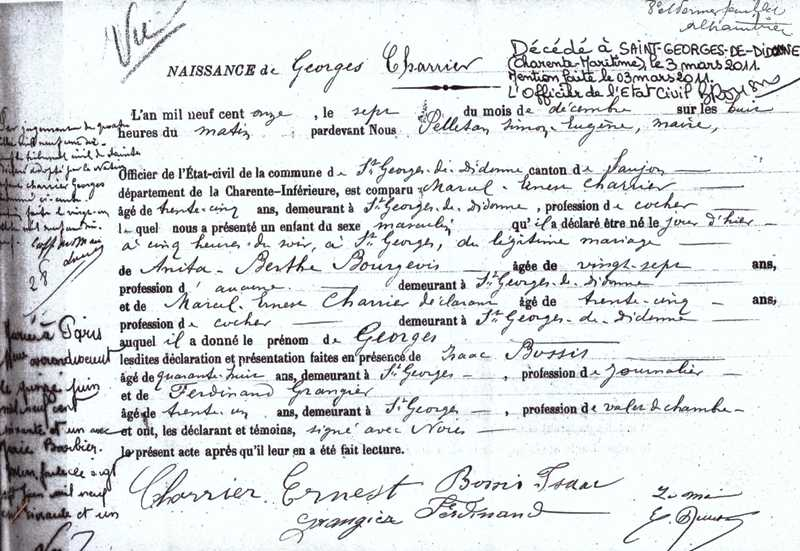 Vu
NAISSANCE de Georges Charrier
Décédé à SAINT-GEORGES-DE-DIDONNE
(Charente-Maritime) le 3 mars 2011.
Mention faite le 03 mars 2011.
L'Officier de l'Etat Civil
L'an mil neuf cent onze, le sept du mois de décembre sur les huit
heures du matin pardevant Nous Pelletan Simon-Eugène, maire,
Officier de l'État-civil de la commune de St Georges-de-Didonne canton de Saujon
département de la Charente-Inférieure, est comparu Marcel-Ernest Charrier
âgé de trente-cinq ans, demeurant à St Georges-de-didonne, profession de cocher
lequel nous a présenté un enfant du sexe masculin qu'il a déclaré être né le jour d'hier
à cinq heures du soir, à St Georges, du légitime mariage
de Anita-Berthe Bourgeois âgée de vingt-sept ans,
profession d'aucune demeurant à St Georges-de-didonne
et de Marcel-Ernest Charrier déclarant âgé de trente-cinq ans,
profession de cocher demeurant à St Georges-de-didonne
auquel il a donné le prénom de Georges
lesdites déclaration et présentation faites en présence de Isaac Bossis
âgé de quarante-huit ans, demeurant à St Georges, profession de journalier
et de Ferdinand Grangier
âgé de trente-un ans, demeurant à St Georges, profession de valet de chambre
et ont, les déclarant et témoins, signé avec Nous
le présent acte après qu'il leur en a été fait lecture.
Charrier Ernest Bossis Isaac
Grangier Ferdinand
Le maire
Par jugement du
tribunal civil de
adopté par la Nation
Charrier Georges
28
Marié à Paris
arrondissement
le quinze juin
mil neuf cent
soixante et un avec
Barbier
juin mil neuf
soixante et un